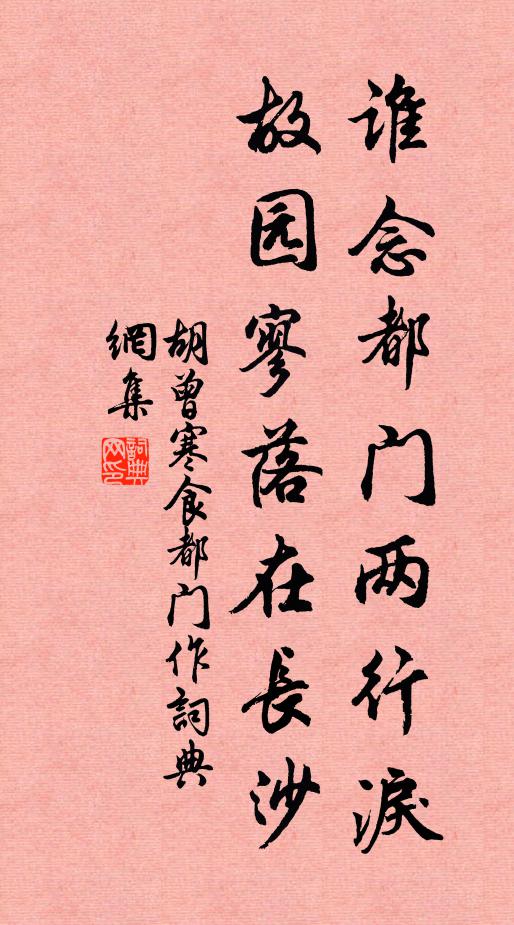 谁念都门两行淚
故园寥落在長沙
胡曾寒食都门作詞典
網集
詞典
网印